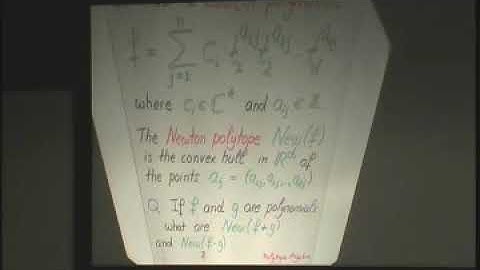 polynomial
f = Σ_{j=1}^{n} c_j t_1^{a_{1j}} t_2^{a_{2j}} ⋯ t_d^{a_{dj}}
where c_i ∈ ℂ* and a_ij ∈ ℤ
The Newton polytope New(f)
is the convex hull in ℝ^d of
the points a_j = (a_1j, a_2j, ..., a_dj)
Q. If f and g are polynomials
what are New(f+g)
and New(f·g)
?
Polytope Algebra